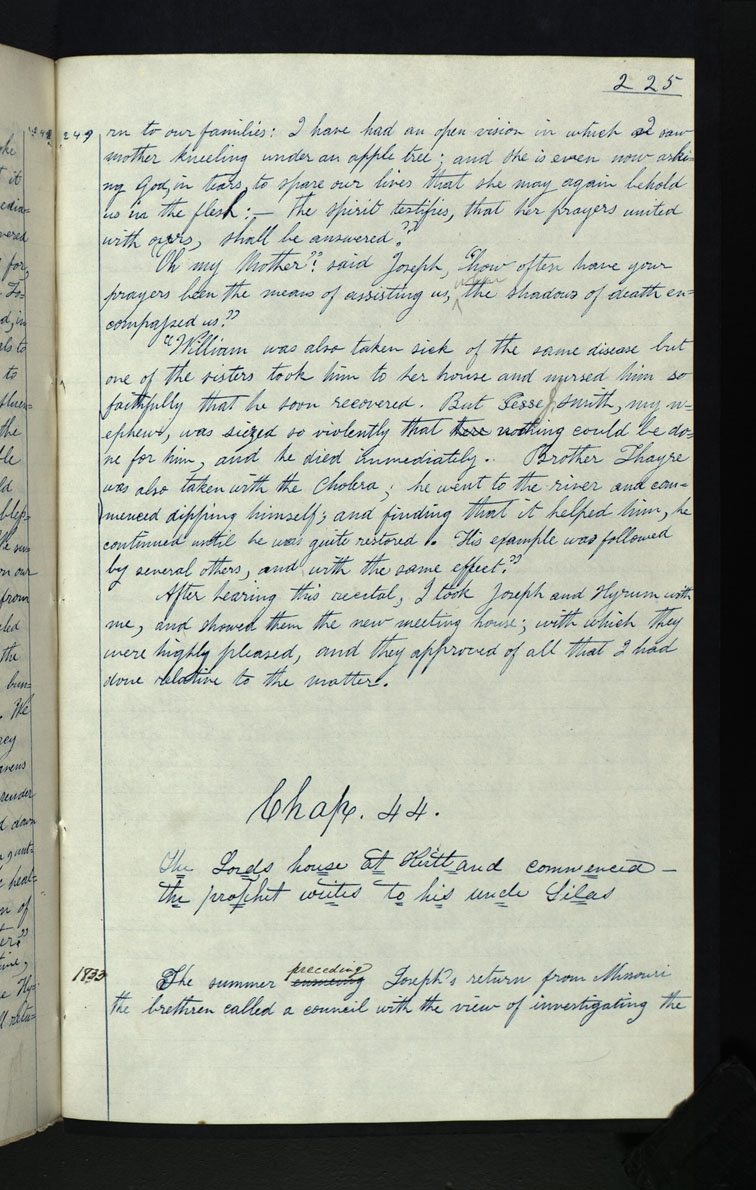 225
249 rn to our families: I have had an open vision in which I saw
mother kneeling under an apple tree; and she is even now aski=
ng God, in tears, to spare our lives that she may again behold
us in the flesh:— The spirit testifies, that her prayers united
with ours, shall be answered."
"Oh my Mother"! said Joseph, "how often have your
prayers been the means of assisting us, when the shadows of death en=
compassed us."
"William was also taken sick of the same disease but
one of the sisters took him to her house and nursed him so
faithfully that he soon recovered. But Jesse J smith, my n=
ephew, was siezed so violently that nothing could be do=
ne for him, and he died immediately. Brother Thayre
was also taken with the Cholera; he went to the river and com=
menced dipping himself; and finding that it helped him, he
continued until he was quite restored. His example was followed
by several others, and with the same effect."
After hearing this recital, I took Joseph and Hyrum with
me, and showed them the new meeting house; with which they
were highly pleased, and they approved of all that I had
done relative to the matter.
Chap. 44.
The Lords house at Kirtland commenced —
the prophet writes to his uncle Silas
preceding
1833 The summer Joseph's return from Missouri
the brethren called a council with the view of investigating the